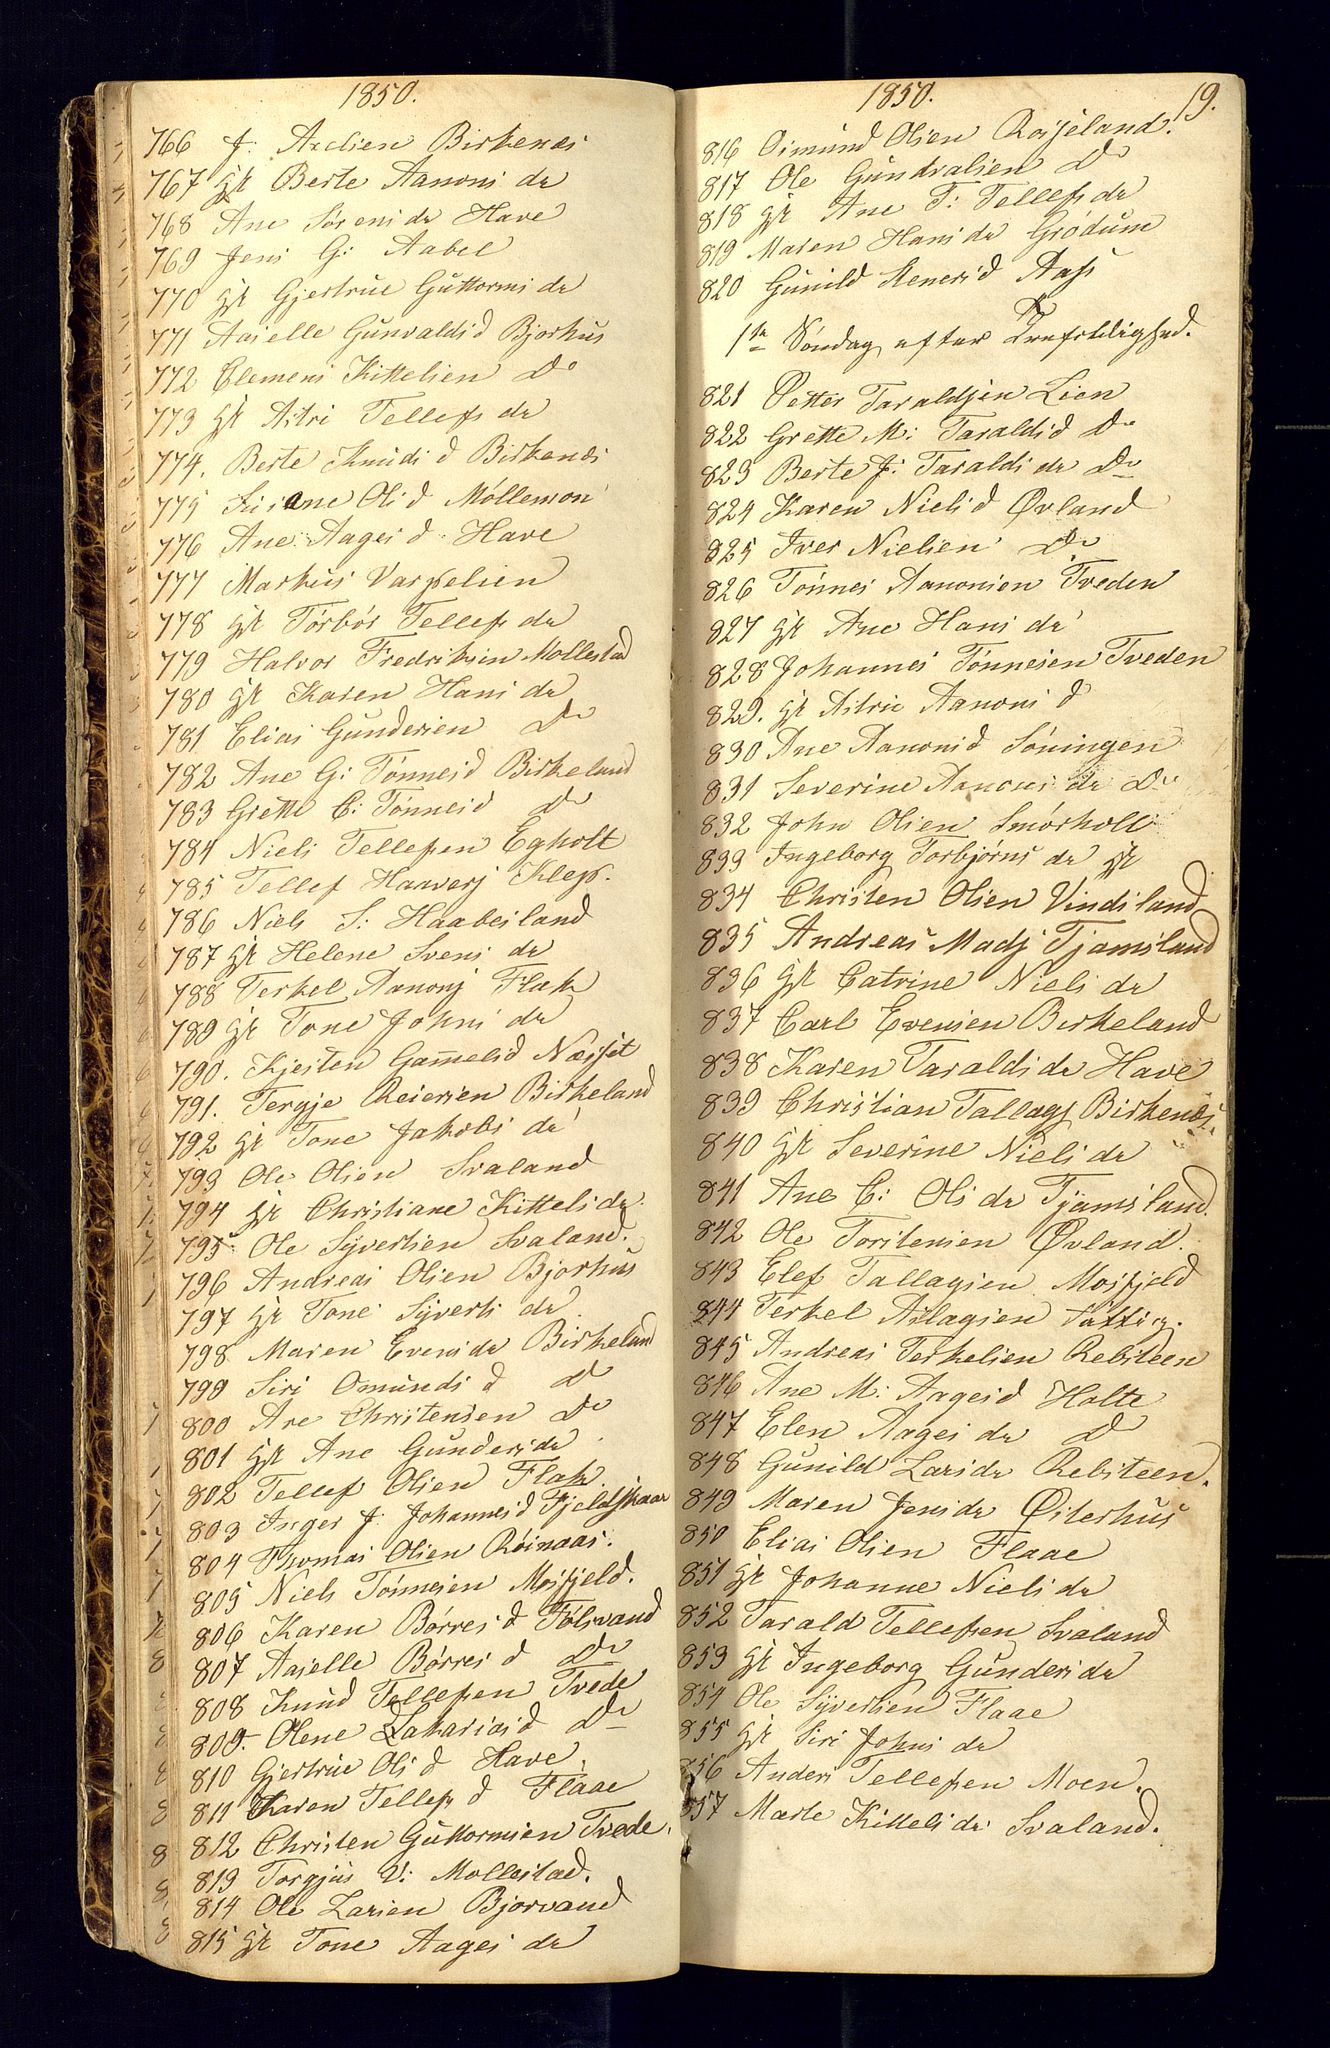 1850.
766 J: Axelsen Birkenæs
767 gk Berte Aanons dr
768 Ane Sørens dr Have
769 Jens G: Aabel
770 gk Gjertrue Guttorms dr
771 Aasielle Gunvaldsd Bjorhus
772 Clemens Kittelsen Do
773 gk Astri Tellefs dr
774. Berte Knuds d Birkenæs
775 Susane Ols d Møllemon
776 Ane Aages d. Have
777 Markus Varpelien
778 gk Torbor Tellefs dr
779 Halvor Fredriksen Mollestad
780 gk Karen Hans dr
781 Elias Gundersen Do
782 Ane G: Tønnesd Birkeland
783 Grette C: Tønnesd Do
784 Niels Tellefsen Egholt
785 Tellef Haaversj Klep.
786 Niels S: Haabesland
787 gk Helene Svens dr
788 Terkel Aanonsj Flak
789 gk Tone Johns dr
790. Kjersten Gamelsd Næsset
791. Tergje Reiersen Birkeland
792 gk Tone Jakobs dr
793 Ole Olsen Svaland
794 gk Christiane Kittels dr
795 Ole Syvertsen Svaland.
796 Andreas Olsen Bjorhus
797 gk Tone Syverts dr
798 Maren Evens dr Birkeland
799 Siri Omunds d Do
800 Are Christensen Do
801 gk Ane Gunders dr
802 Tellef Olsen Flak
803 Inger J: Johannesd Fjeldskaar
804 Thomas Olsen Røinaas.
805 Niels Tønnesen Mosfjeld.
806 Karen Børres d Følsvand
807 Aasielle Børres d Do
808 Knud Tellefsen Tvede
809. Olene Zakariasd Do
810 Gjertrue Ols d Have
811 Karen Tellefs d Flaae
812 Christen Guttormsen Tvede.
813 Torgjus V: Mollestad.
814 Ole Larsen Bjorvand
815 gk Tone Aages dr
1850.
19.
816 Osmund Olsen Rosseland.
817 Ole Gundvalsen Do
818 gk Ane T: Tellefs dr
819 Maren Hans dr Grødum
820 Gunild Stenersd Aas
1ste Søndag efter Trefoldighed.
821 Petter Taraldsen Lien
822 Grette M: Taraldsd Do
823 Berte J: Taralds dr Do
824 Karen Niels d Øvland
825 Iver Nielsen Do
826 Tønnes Aanonsen Tveden
827 gk Ane Hans dr
828 Johannes Tønnesen Tveden
829. gk Astrie Aanons d
830 Ane Aanonsd Søningen
831 Severine Aanons dr Do
832 John Olsen Smørholt
833 Ingeborg Torbjørns dr gk
834 Christen Olsen Vindsland
835 Andreas Madsj Tjamsland
836 gk Catrine Niels dr
837 Carl Evensen Birkeland
838 Karen Taralds dr Have
839 Christian Tallagsj Birkenæs
840 gk Severine Niels dr
841 Ane C: Ols dr Tjamsland.
842 Ole Torstensen Øvland.
843 Elef Tallagsen Mosfjeld
844 Terkel Aslagsen
845 Andreas Terkelsen Rebsteen
846 Ane M: Aagesd Holte
847 Elen Aages dr Do
848 Gunild Larsdr Rebsteen.
849 Maren Jensdr Østerhus
850 Elias Olsen Flaae
851 gk Johanne Niels dr
852 Tarald Tellefsen Svaland
853 gk Ingeborg Gunders dr
854 Ole Syvertsen Flaae
855 gk Siri Johns dr
856 Anders Tellefsen Moen.
857 Marte Kittels dr Svaland.